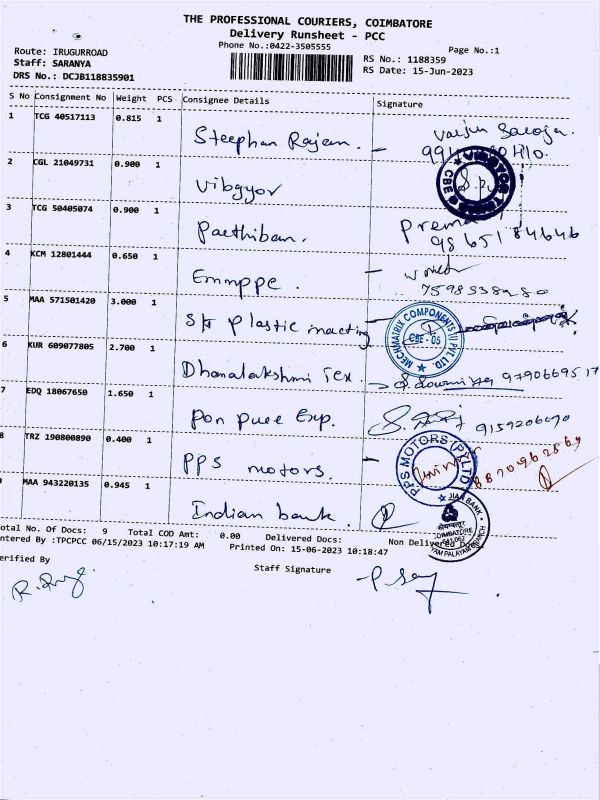 THE PROFESSIONAL COURIERS, COIMBATORE
Delivery Runsheet - PCC
Phone No.:0422-3505555
Page No.:1
Route: IRUGURROAD
Staff: SARANYA
DRS No.: DCJB118835901
RS No.: 1188359
RS Date: 15-Jun-2023
S No Consignment No Weight PCS Consignee Details Signature
1 TCG 40517113 0.815 1 Steephan Rajan.
2 CGL 21049731 0.900 1 Vibgyor
CBE
3 TCG 50405074 0.900 1 Parthiban. Prema
9865184646
4 KCM 12801444 0.650 1 Emmppe.
7598538980
5 MAA 571501420 3.000 1 plastic
MECHMATRIX COMPONENTS (I) PVT. LTD. CBE - 05
6 KUR 609077805 2.700 1 Dhanalakshmi Tex. 9790669517
7 EDQ 18067650 1.650 1 Pon pure Exp. 9159206690
8 TRZ 190800890 0.400 1 PPS motors.
PPS MOTORS (P) LTD 8870962569
9 MAA 943220135 0.945 1 Indian bank.
COIMBATORE
Total No. Of Docs: 9 Total COD Amt: 0.00 Delivered Docs: Non Delivered Docs
Entered By :TPCPCC 06/15/2023 10:17:19 AM Printed On: 15-06-2023 10:18:47
Verified By Staff Signature